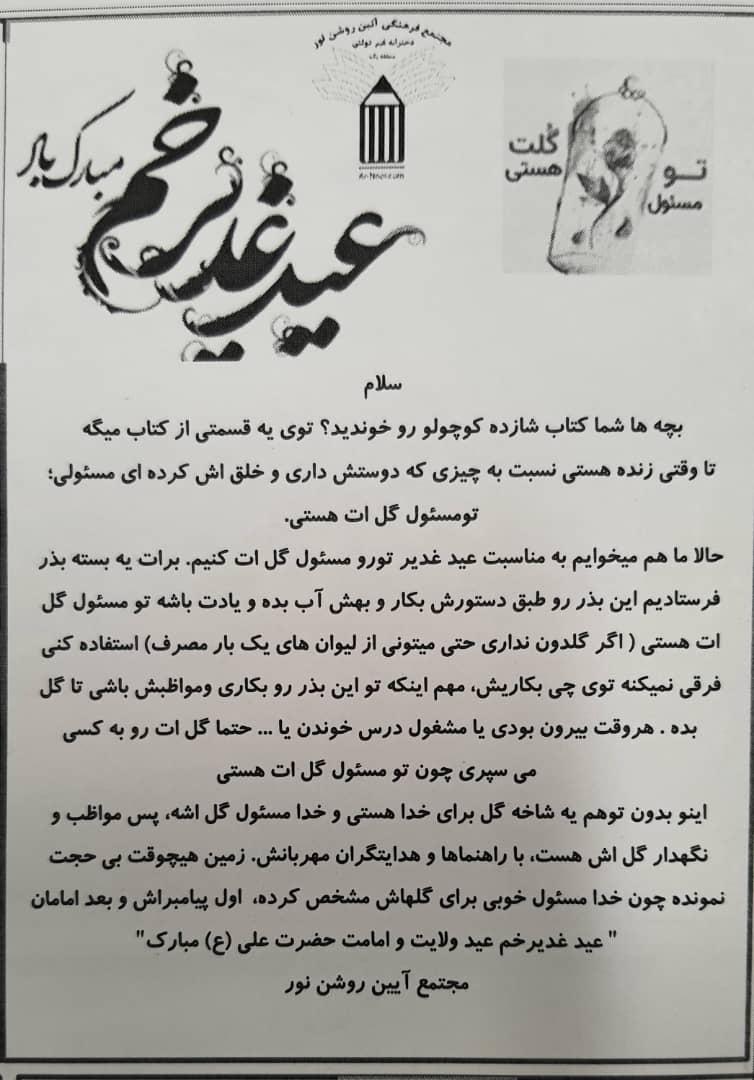 مجتمع فرهنگی آئین روشن نور
دخترانه غیر دولتی
عید غدیر خم
مبارک باد
تو
مسئول
گلت
هستی
سلام
بچه ها شما کتاب شازده کوچولو رو خوندید؟ توی یه قسمتی از کتاب میگه
تا وقتی زنده هستی نسبت به چیزی که دوستش داری و خلق اش کرده ای مسئولی؛
تومسئول گل ات هستی.
حالا ما هم میخوایم به مناسبت عید غدیر تورو مسئول گل ات کنیم. برات یه بسته بذر
فرستادیم این بذر رو طبق دستورش بکار و بهش آب بده و یادت باشه تو مسئول گل
ات هستی ( اگر گلدون نداری حتی میتونی از لیوان های یک بار مصرف) استفاده کنی
فرقی نمیکنه توی چی بکاریش، مهم اینکه تو این بذر رو بکاری ومواظبش باشی تا گل
بده . هروقت بیرون بودی یا مشغول درس خوندن یا ... حتما گل ات رو به کسی
می سپری چون تو مسئول گل ات هستی
اینو بدون توهم یه شاخه گل برای خدا هستی و خدا مسئول گل اشه، پس مواظب و
نگهدار گل اش هست، با راهنماها و هدایتگران مهربانش. زمین هیچوقت بی حجت
نمونده چون خدا مسئول خوبی برای گلهاش مشخص کرده، اول پیامبراش و بعد امامان
" عید غدیرخم عید ولایت و امامت حضرت علی (ع) مبارک"
مجتمع آیین روشن نور